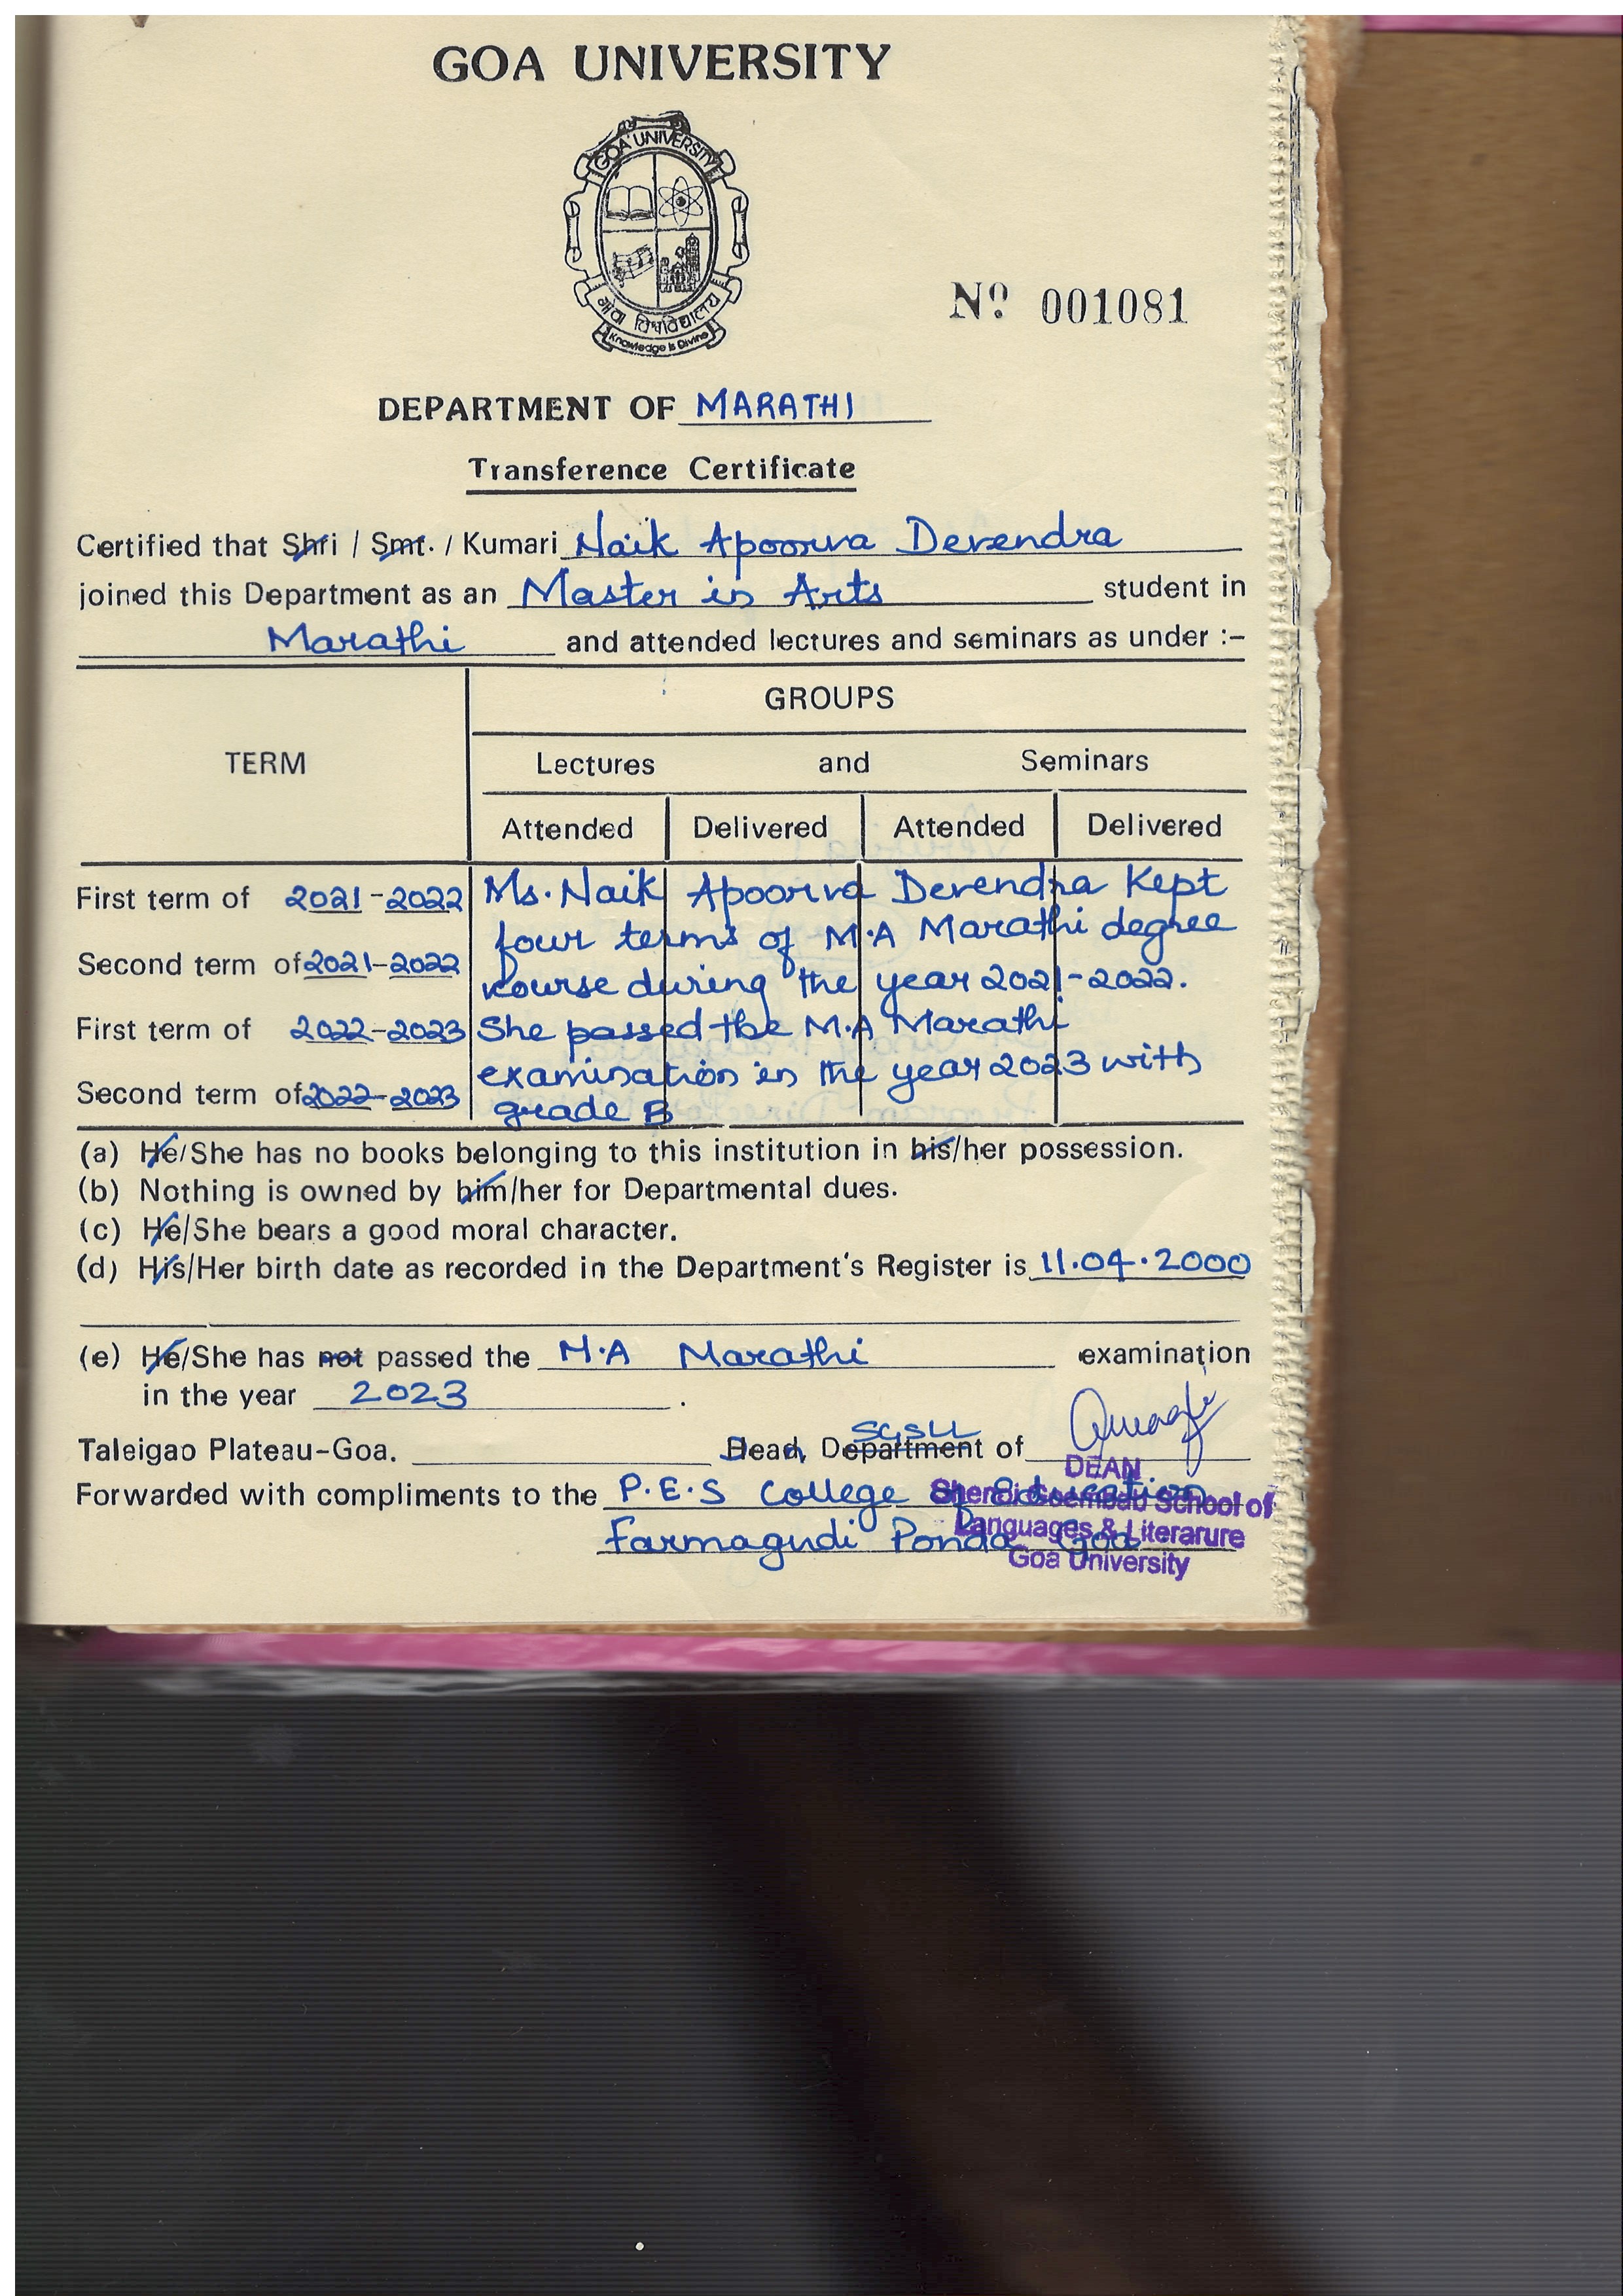 GOA UNIVERSITY
GOA UNIVERSITY
गोवा विश्वविद्यालय
Knowledge is Divine
Nº 001081
DEPARTMENT OF MARATHI
Transference Certificate
Certified that Shri / Smt. / Kumari Naik Apoorva Devendra
joined this Department as an Master in Arts student in
Marathi and attended lectures and seminars as under :–
GROUPS
TERM Lectures and Seminars
Attended Delivered Attended Delivered
First term of 2021-2022 Ms. Naik Apoorva Devendra Kept
four terms of M.A Marathi degree
Second term of 2021-2022
course during the year 2021-2022.
First term of 2022-2023 She passed the M.A Marathi
examination in the year 2023 with
Second term of 2022-2023
grade B
(a) He/She has no books belonging to this institution in his/her possession.
(b) Nothing is owned by him/her for Departmental dues.
(c) He/She bears a good moral character.
(d) His/Her birth date as recorded in the Department's Register is 11.04.2000
(e) He/She has not passed the M.A Marathi examination
in the year 2023 .
SGSLL
Taleigao Plateau-Goa. Dean, Department of
DEAN
Forwarded with compliments to the P.E.S College of Education
Shenoi Goembab School of
Farmagudi Ponda Goa
Languages & Literarure
Goa University